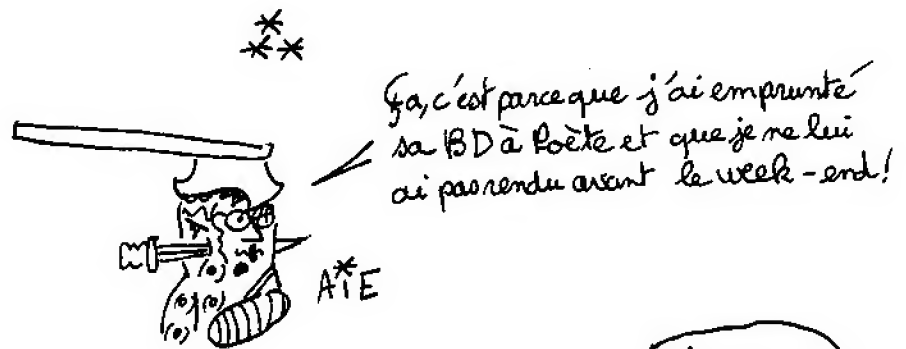 Ça, c'est parce que j'ai emprunté
sa BD à Poète et que je ne lui
ai pas rendu avant le week-end!
AÏE